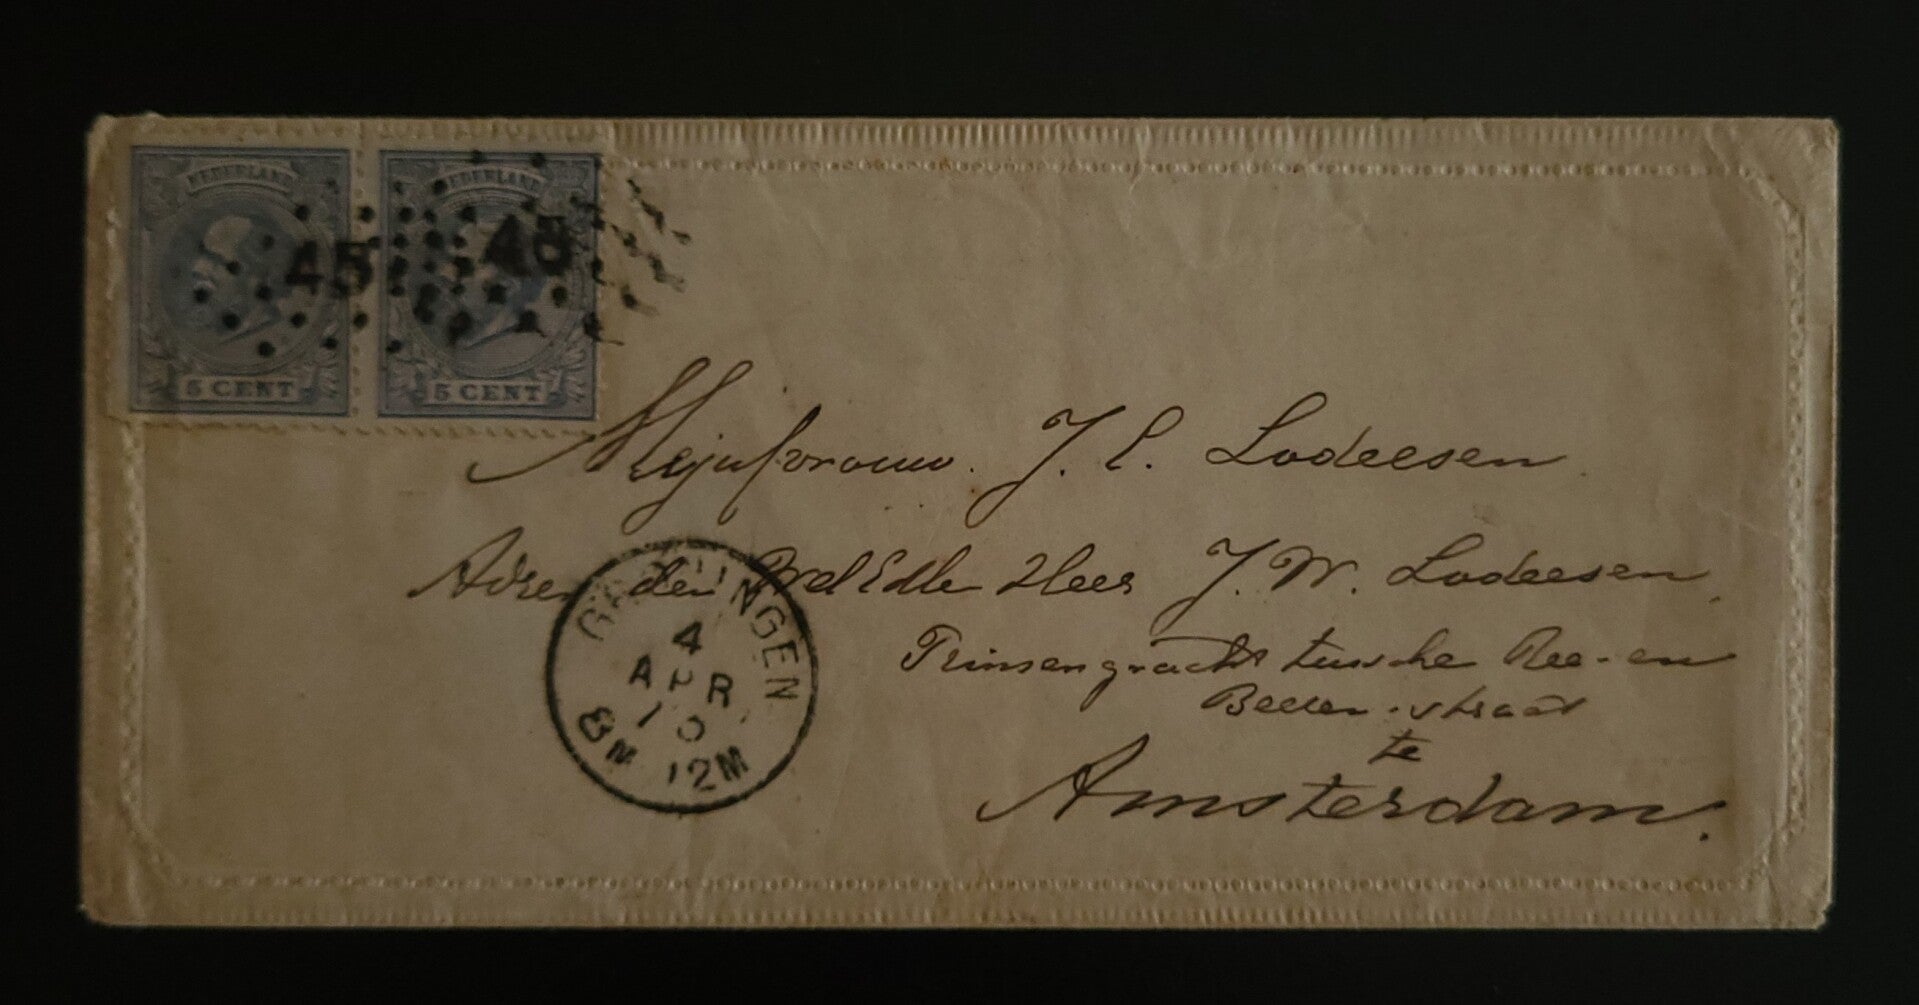 NEDERLAND NEDERLAND
45 45
5 CENT 5 CENT
Mejufvrouw. J. C. Lodeesen
Adres den WelEdle Heer J. W. Lodeesen,
Prinsengracht tussche Ree- en
Beeren-straat
te
Amsterdam.
GRONINGEN
4
APR
10
8M 12M